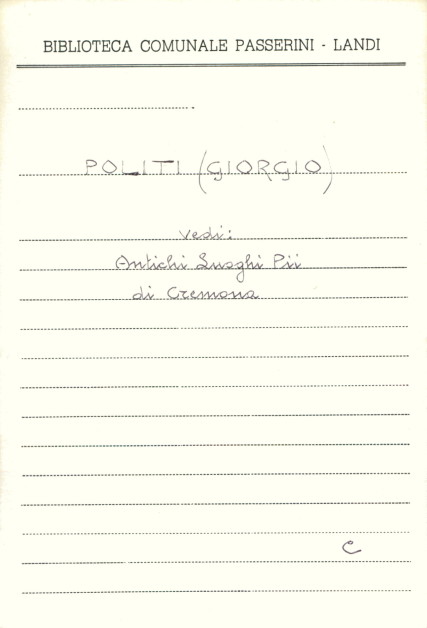 BIBLIOTECA COMUNALE PASSERINI - LANDI
POLITI (GIORGIO)
vedi:
Antichi Luoghi Pii
di Cremona
C